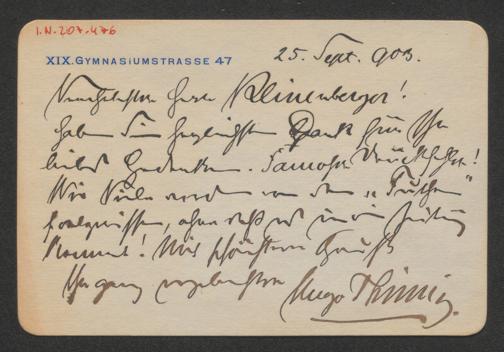 I.N. 207.476
XIX. GYMNASIUMSTRASSE 47
25. Sept. 903.
Verehrtester Herr Kleinenberger!
Haben Sie herzlichsten Dank für Ihr
liebes Gedenken. Famoser Druckfehler!
Wie Viele werden von den „Furchen"
ergriffen, ohne daß es in die Zeitung
kommt! Mit schönstem Gruß
Ihr ganz ergebenster Hugo Thimig.